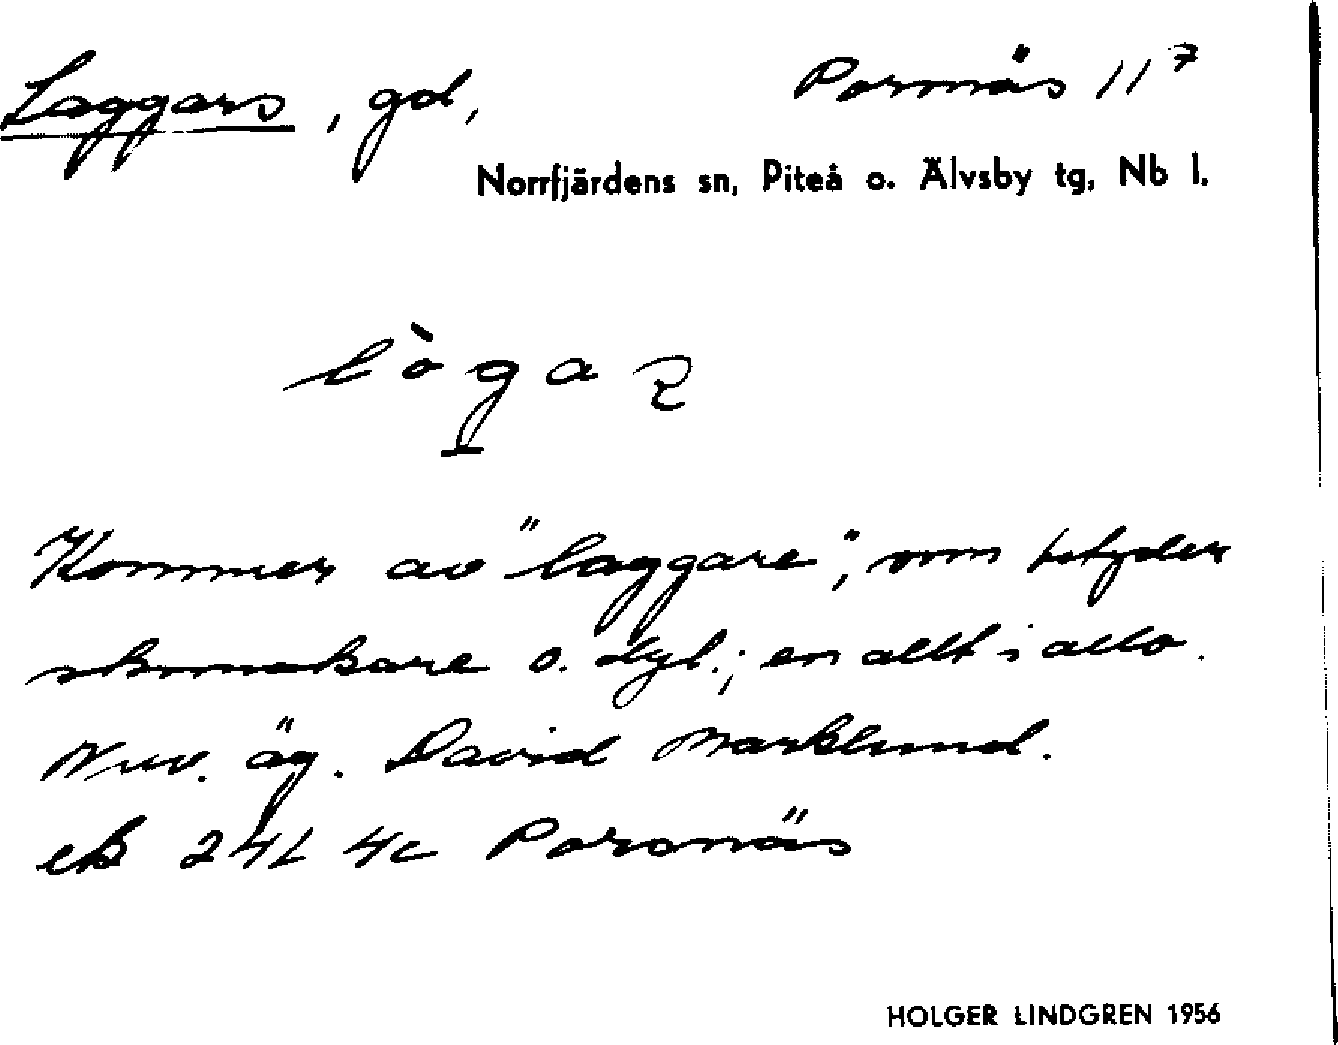 Laggars, gd,
Porsnäs 11⁷
Norrfjärdens sn, Piteå o. Älvsby tg, Nb l.
Kommer av "laggare", som betyder
skomakare o. dyl.; en allt i allo.
Nuv. äg. David Marklund.
ek 24L 4c Porsnäs
HOLGER LINDGREN 1956